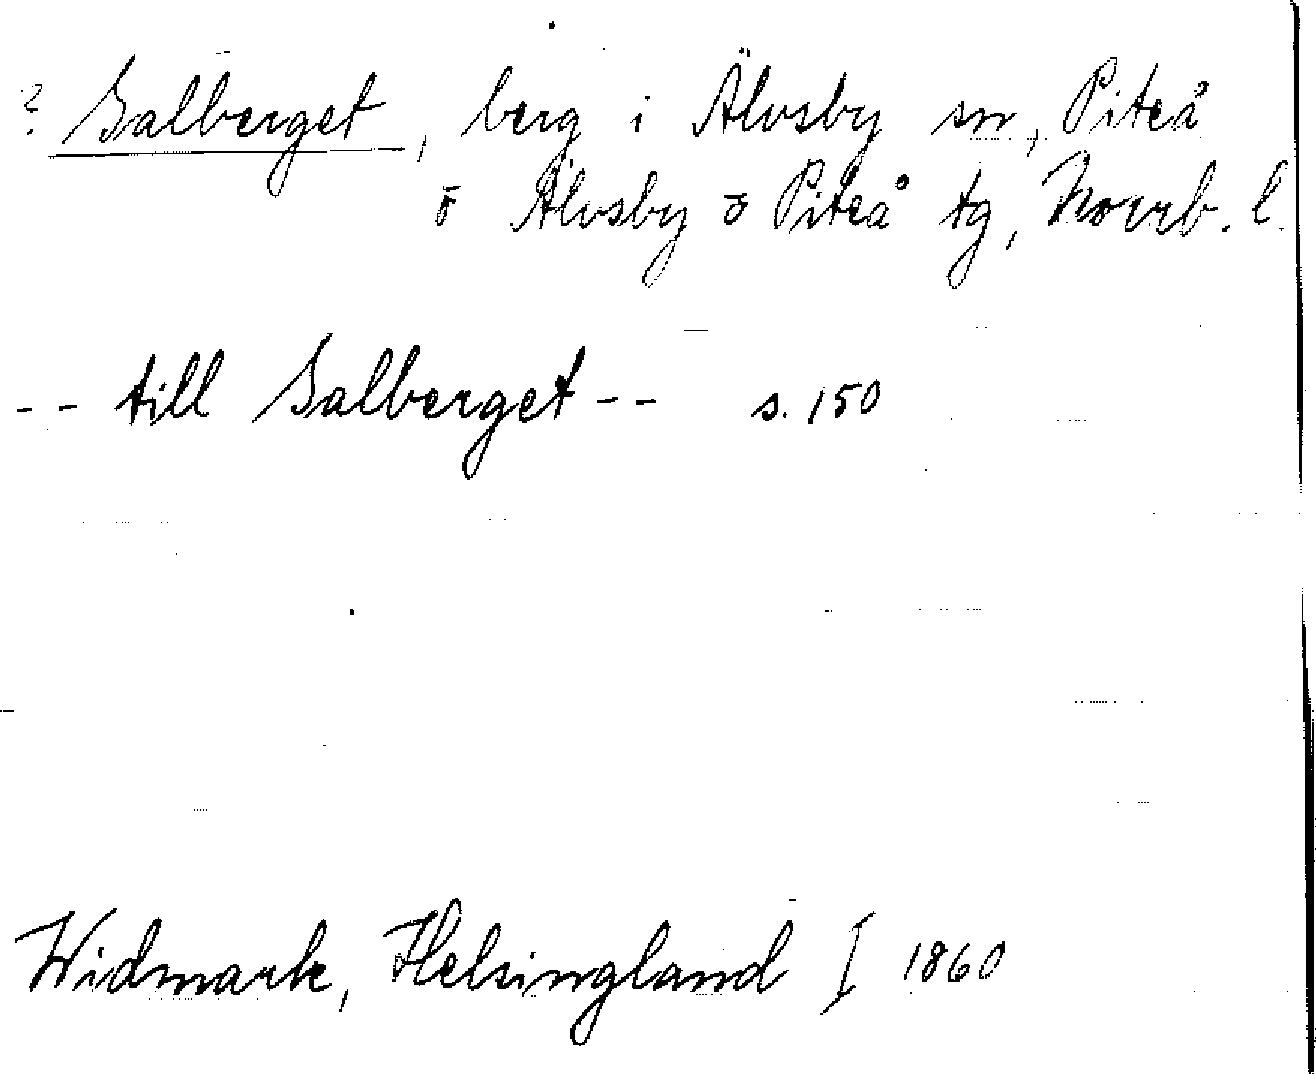 ? Salberget, berg i Älvsby sn, Piteå
o Älvsby o Piteå tg, Norrb. l.
-- till Salberget -- s. 150
Widmark, Helsingland I 1860